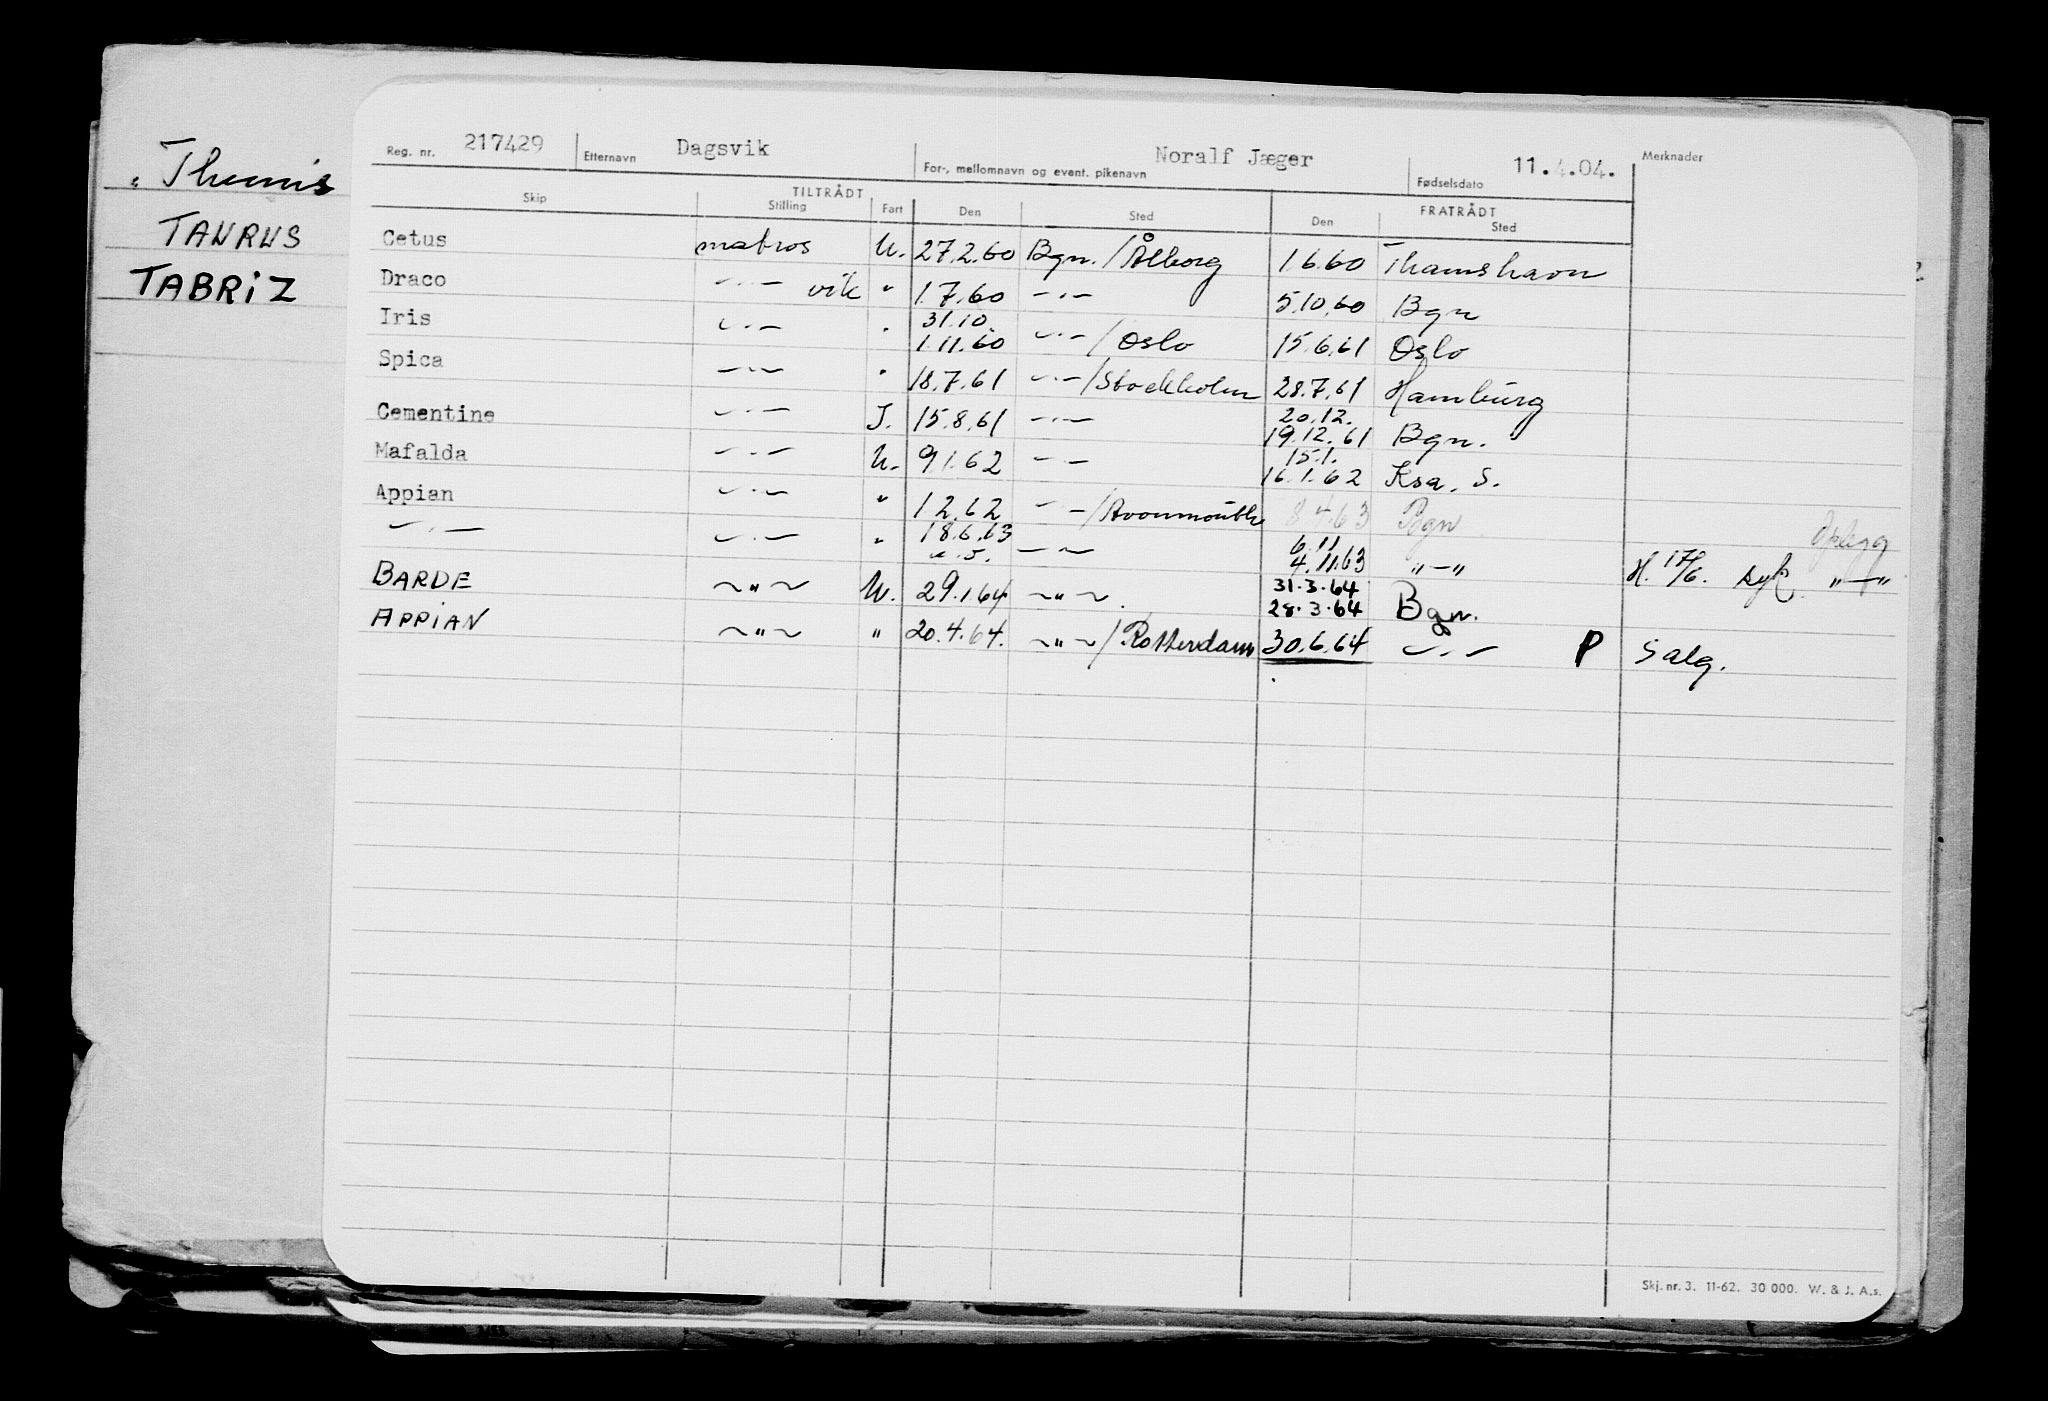 " Themis
TAURUS
TABRIZ
Reg. nr. 217429 Etternavn Dagsvik For-, mellomnavn og event. pikenavn Noralf Jæger Fødselsdato 11.4.04. Merknader
TILTRÅDT FRATRÅDT
Skip Stilling Fart Den Sted Den Sted
Cetus matros U. 27.2.60 Bgn./Ålborg 1.6.60 Thamshavn
Draco -"- vik " 1.7.60 -"- 5.10.60 Bgn
31.10.
Iris -"- " 1.11.60 -"-/Oslo 15.6.61 Oslo
Spica -"- " 18.7.61 -"-/Stockholm 28.7.61 Hamburg
20.12.
Cementine -"- I. 15.8.61 -"- 19.12.61 Bgn.
15.1.
Mafalda -"- U. 9.1.62 -"- 16.1.62 Ksa. S.
Appian -"- " 1.2.62 -"-/Avonmouth 8.4.63 Bgn Opplegg
6.11
-"- -"- " 18.6.63 -"- 4.11.63 "-" H. 17/6. syk. "-"
31.3.64
BARDE -"- U. 29.1.64 -"-. 28.3.64 Bgn.
APPIAN -"- " 20.4.64. -"-/Rotterdam 30.6.64 -"- P Salg.
Skj. nr. 3. 11-62. 30 000. W. & J. A.s.